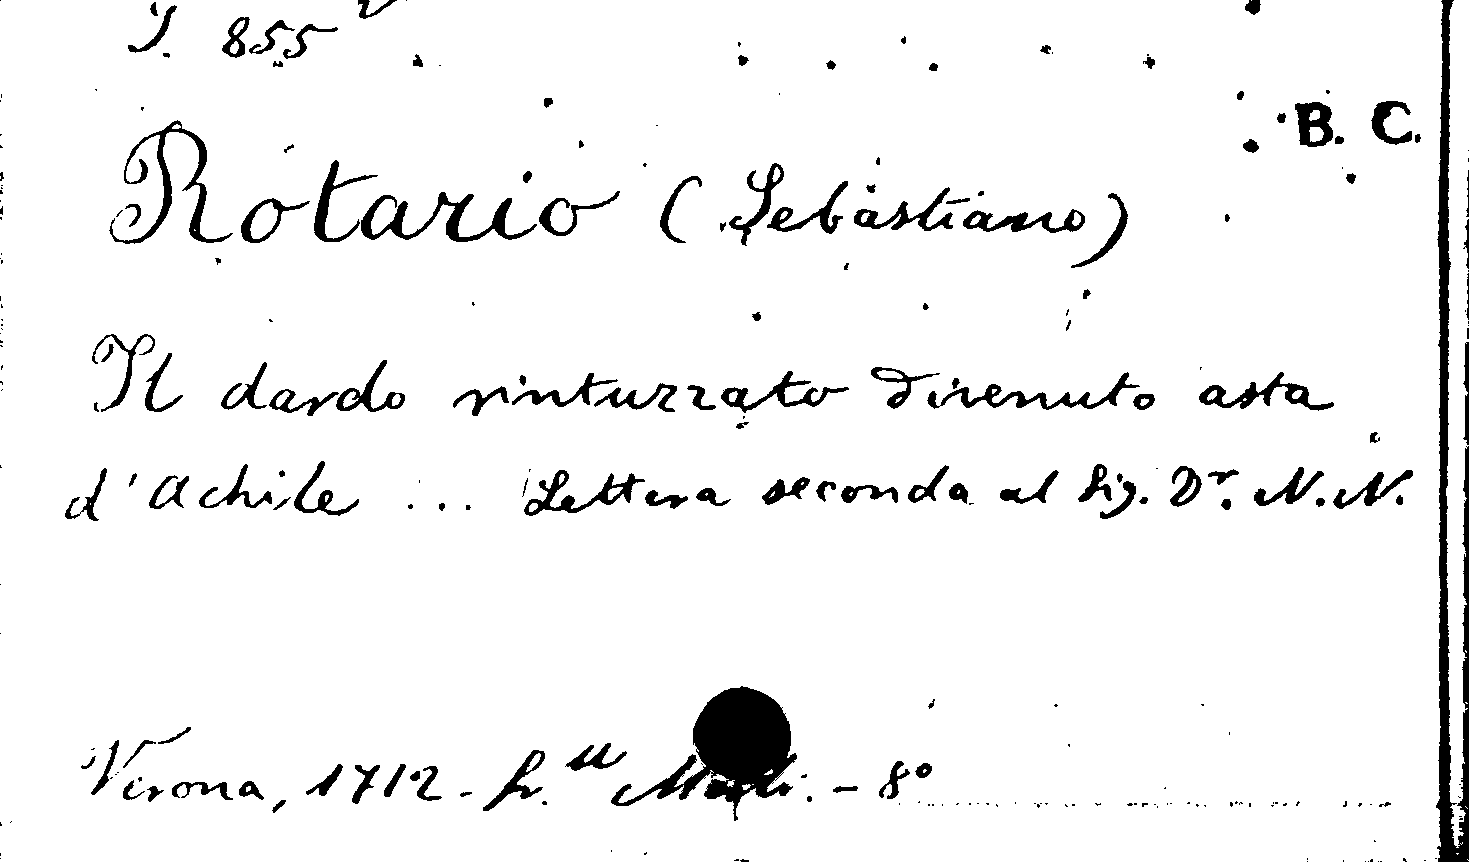 I. 855
B. C.
Rotario (Sebastiano)
Il dardo rintuzzato divenuto asta
d'Achile ... Lettera seconda al Sig. Dr. N. N.
Verona, 1712. - fr.lli Merli. - 8°